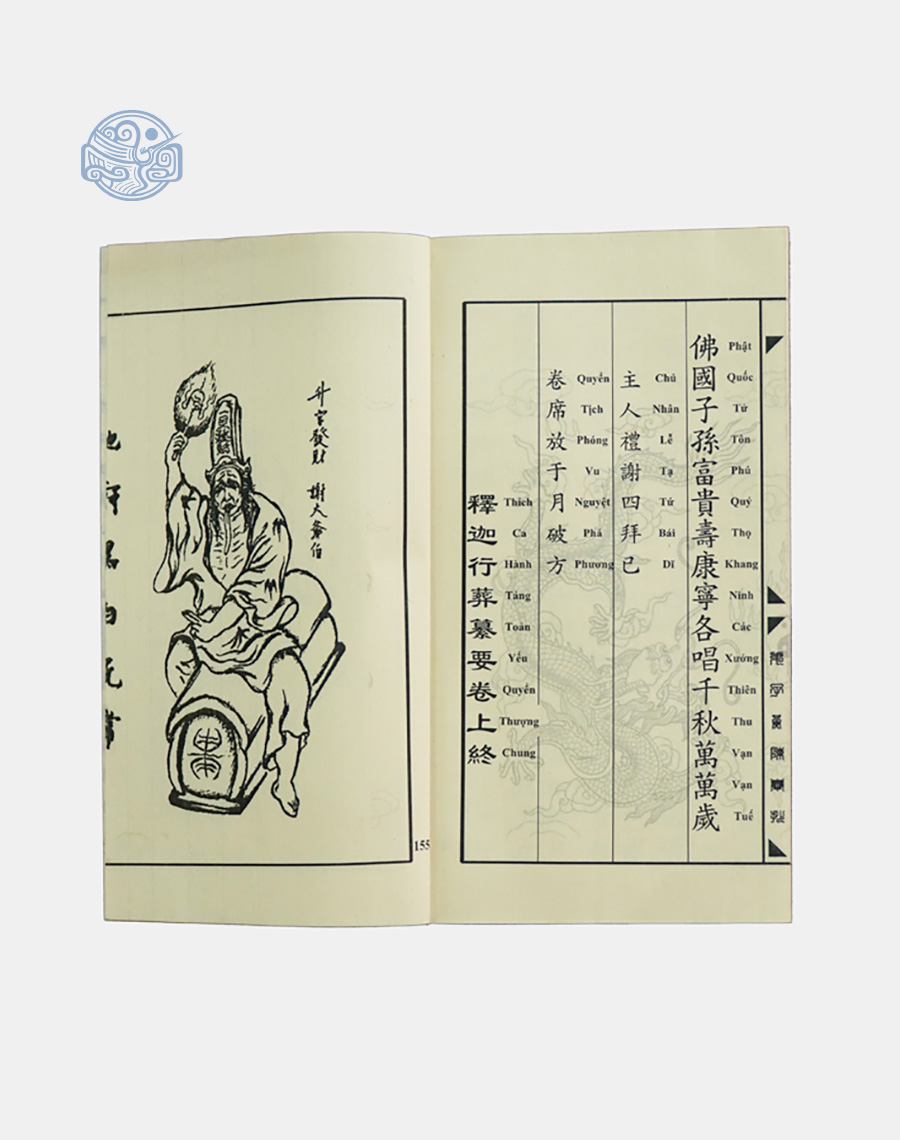 佛國子孫富貴壽康寧各唱千秋萬萬歲
Phật Quốc Tử Tôn Phú Quý Thọ Khang Ninh Các Xướng Thiên Thu Vạn Vạn Tuế
主人禮謝四拜已
Chủ Nhân Lễ Tạ Tứ Bái Dĩ
卷席放于月破方
Quyển Tịch Phóng Vu Nguyệt Phá Phương
釋迦行葬纂要卷上終
Thích Ca Hành Táng Toản Yếu Quyển Thượng Chung
155
升官發財
謝大爺伯